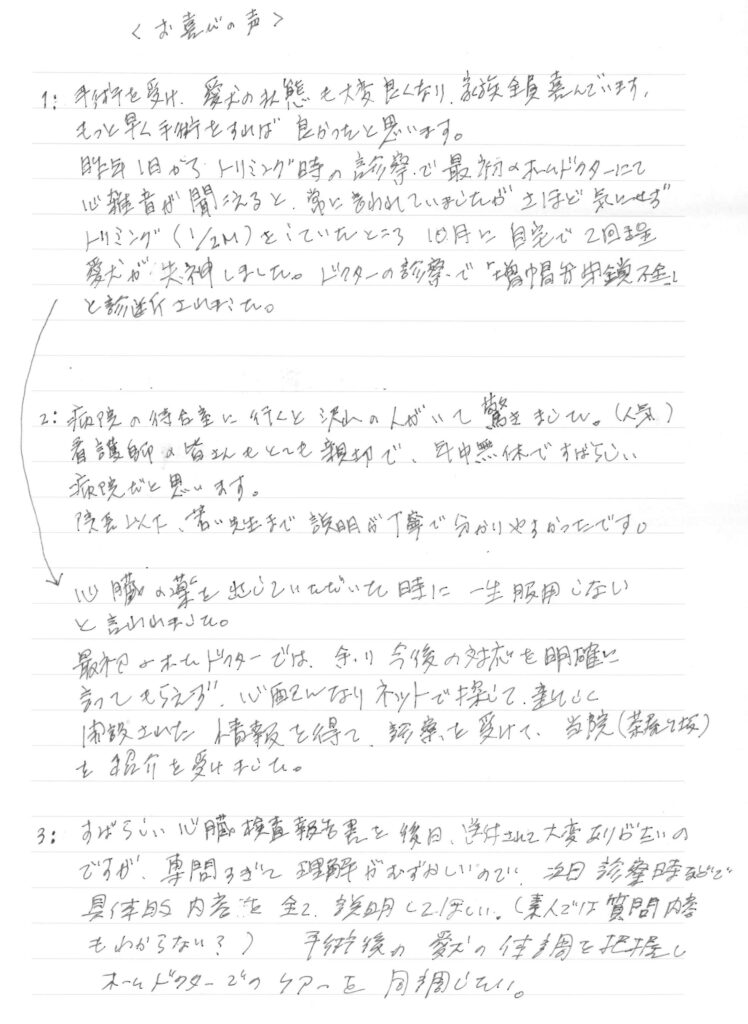 ＜お喜びの声＞
1: 手術を受け、愛犬の状態も大変良くなり、家族全員喜んでいます。
もっと早く手術をすれば良かったと思います。
昨年1日から トリミング時の診察で最初のホームドクターにて
心雑音が聞こえると、常に言われていましたが さほど気にせず
トリミング(1/2M)をしていたところ 10月に自宅で2回程
愛犬が失神しました。ドクターの診察で「増帽弁閉鎖不全」
と診断されました。
2: 病院の待合室に行くと 沢山の人がいて 驚きました。(人気)
看護師の皆さんもとても親切で、年中無休ですばらしい
病院だと思います。
院長以下、若い先生まで 説明が丁寧で分かりやすかったです。
心臓の薬を出していただいた時に 一生服用しない
と言われました。
最初のホームドクターでは、余り今後の対応を明確に
言ってもらえず、心配になりネットで探して、新しく
開設された 情報を得て、診察を受けて、当院(茶屋ヶ坂)
を紹介を受けました。
3: すばらしい心臓検査報告書を後日、送付されて大変ありがたいの
ですが、専問すぎて 理解がむずかしいので、次回 診察時などで
具体的内容を全て、説明してほしい。(素人では質問内容
もわからない?) 手術後の愛犬の体調を把握し
ホームドクターでのケアーを同調したい。